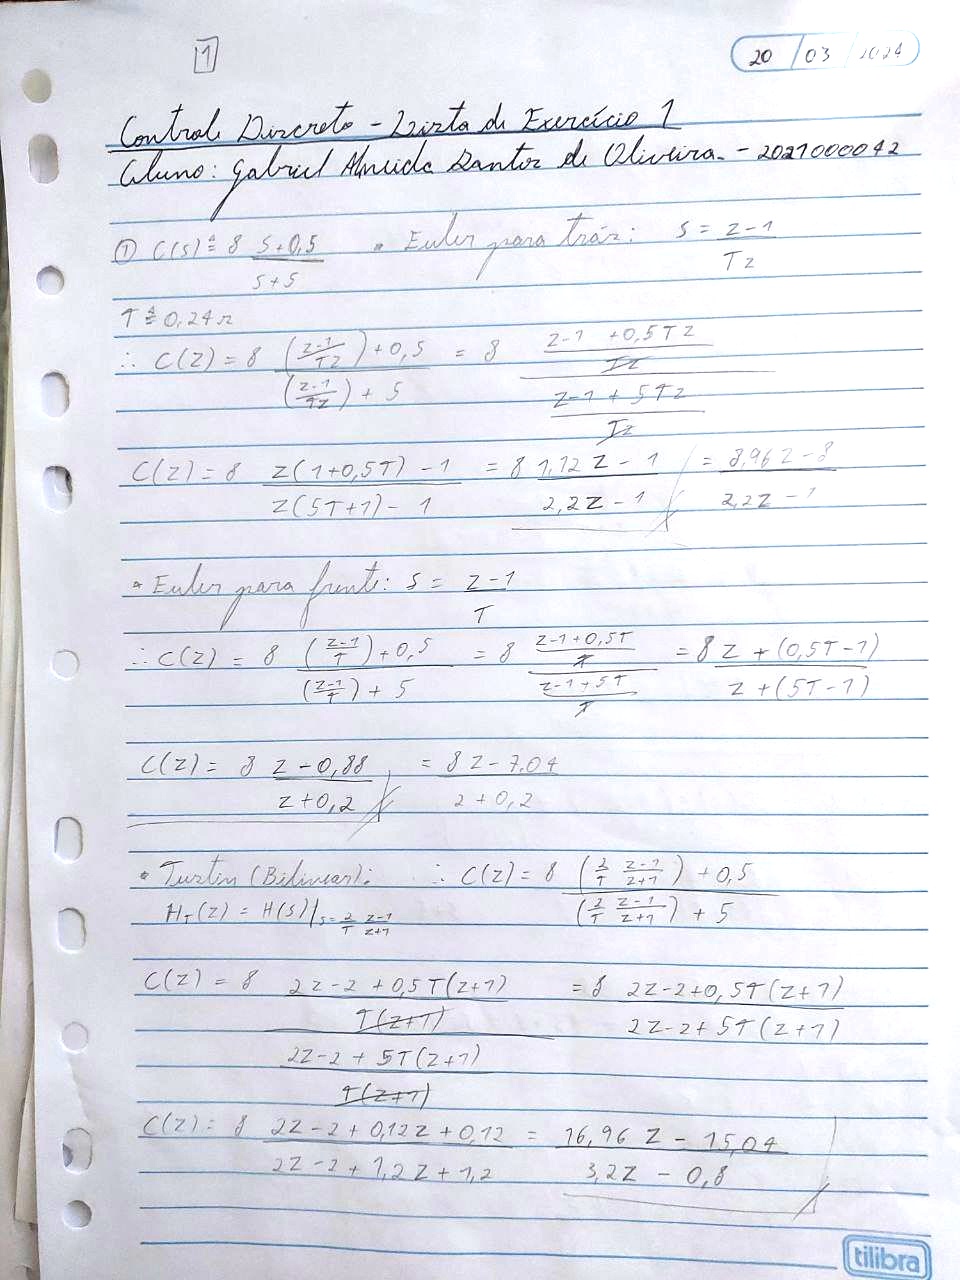 1
20/03/2024
Controle Discreto - Lista de Exercício 1
Aluno: Gabriel Almeida Santos de Oliveira - 2021000042
① C(s) ≜ 8 (s+0,5)/(s+5) • Euler para trás: s = (z-1)/(Tz)
T ≜ 0,24s
∴ C(z) = 8 (((z-1)/(Tz)) + 0,5)/(((z-1)/(Tz)) + 5) = 8 ((z-1+0,5Tz)/(Tz))/((z-1+5Tz)/(Tz))
C(z) = 8 (z(1+0,5T) - 1)/(z(5T+1) - 1) = 8 (1,12z - 1)/(2,2z - 1) = (8,96z - 8)/(2,2z - 1)
• Euler para frente: s = (z-1)/T
∴ C(z) = 8 (((z-1)/T) + 0,5)/(((z-1)/T) + 5) = 8 ((z-1+0,5T)/T)/((z-1+5T)/T) = 8 (z + (0,5T-1))/(z + (5T-1))
C(z) = 8 (z - 0,88)/(z + 0,2) = (8z - 7,04)/(z + 0,2)
• Tustin (Bilinear): ∴ C(z) = 8 ((2/T (z-1)/(z+1)) + 0,5)/((2/T (z-1)/(z+1)) + 5)
H_T(z) = H(s)|s = 2/T (z-1)/(z+1)
C(z) = 8 ((2z-2+0,5T(z+1))/(T(z+1)))/((2z-2+5T(z+1))/(T(z+1))) = 8 (2z-2+0,5T(z+1))/(2z-2+5T(z+1))
C(z) = 8 (2z-2+0,12z+0,12)/(2z-2+1,2z+1,2) = (16,96z - 15,04)/(3,2z - 0,8)
tilibra